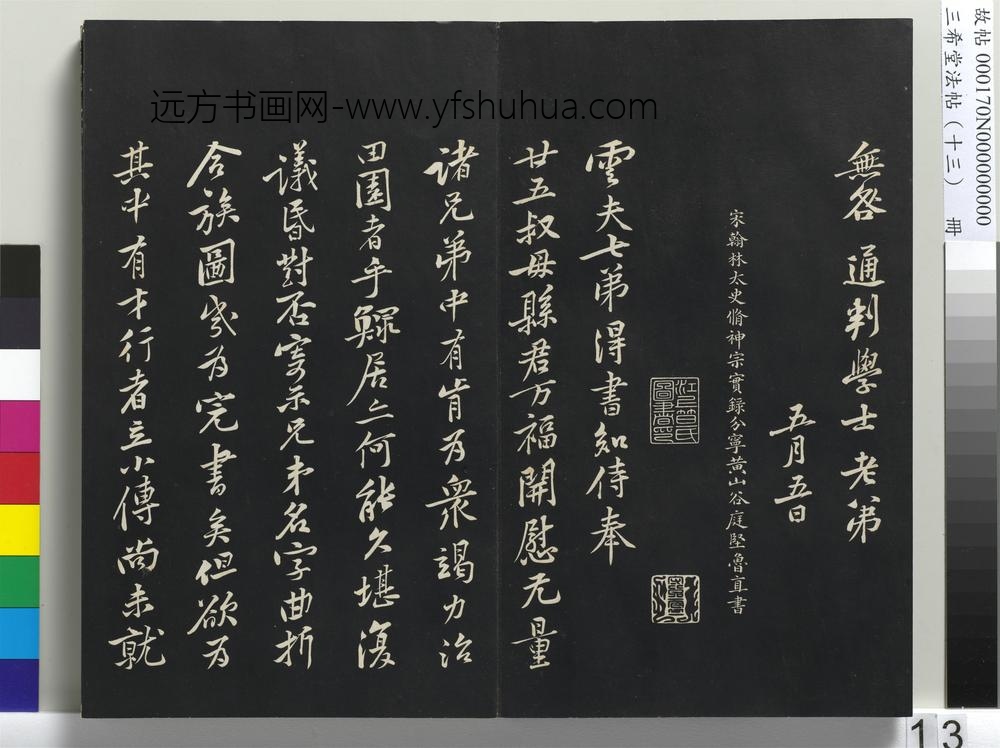 故帖 000170N000000000
三希堂法帖（十三） 冊
远方书画网-www.yfshuhua.com
無咎 通判學士老弟
五月五日
宋翰林太史脩神宗實錄分寧黃山谷庭堅魯直書
雲夫七弟得書知侍奉
廿五叔母縣君万福開慰无量
諸兄弟中有肯為衆竭力治
田園者乎鰥居亦何能久堪復
議昏對否寄示兄弟名字曲折
合族圖歲為完書矣但欲為
其中有才行者立小傳尚未就
13